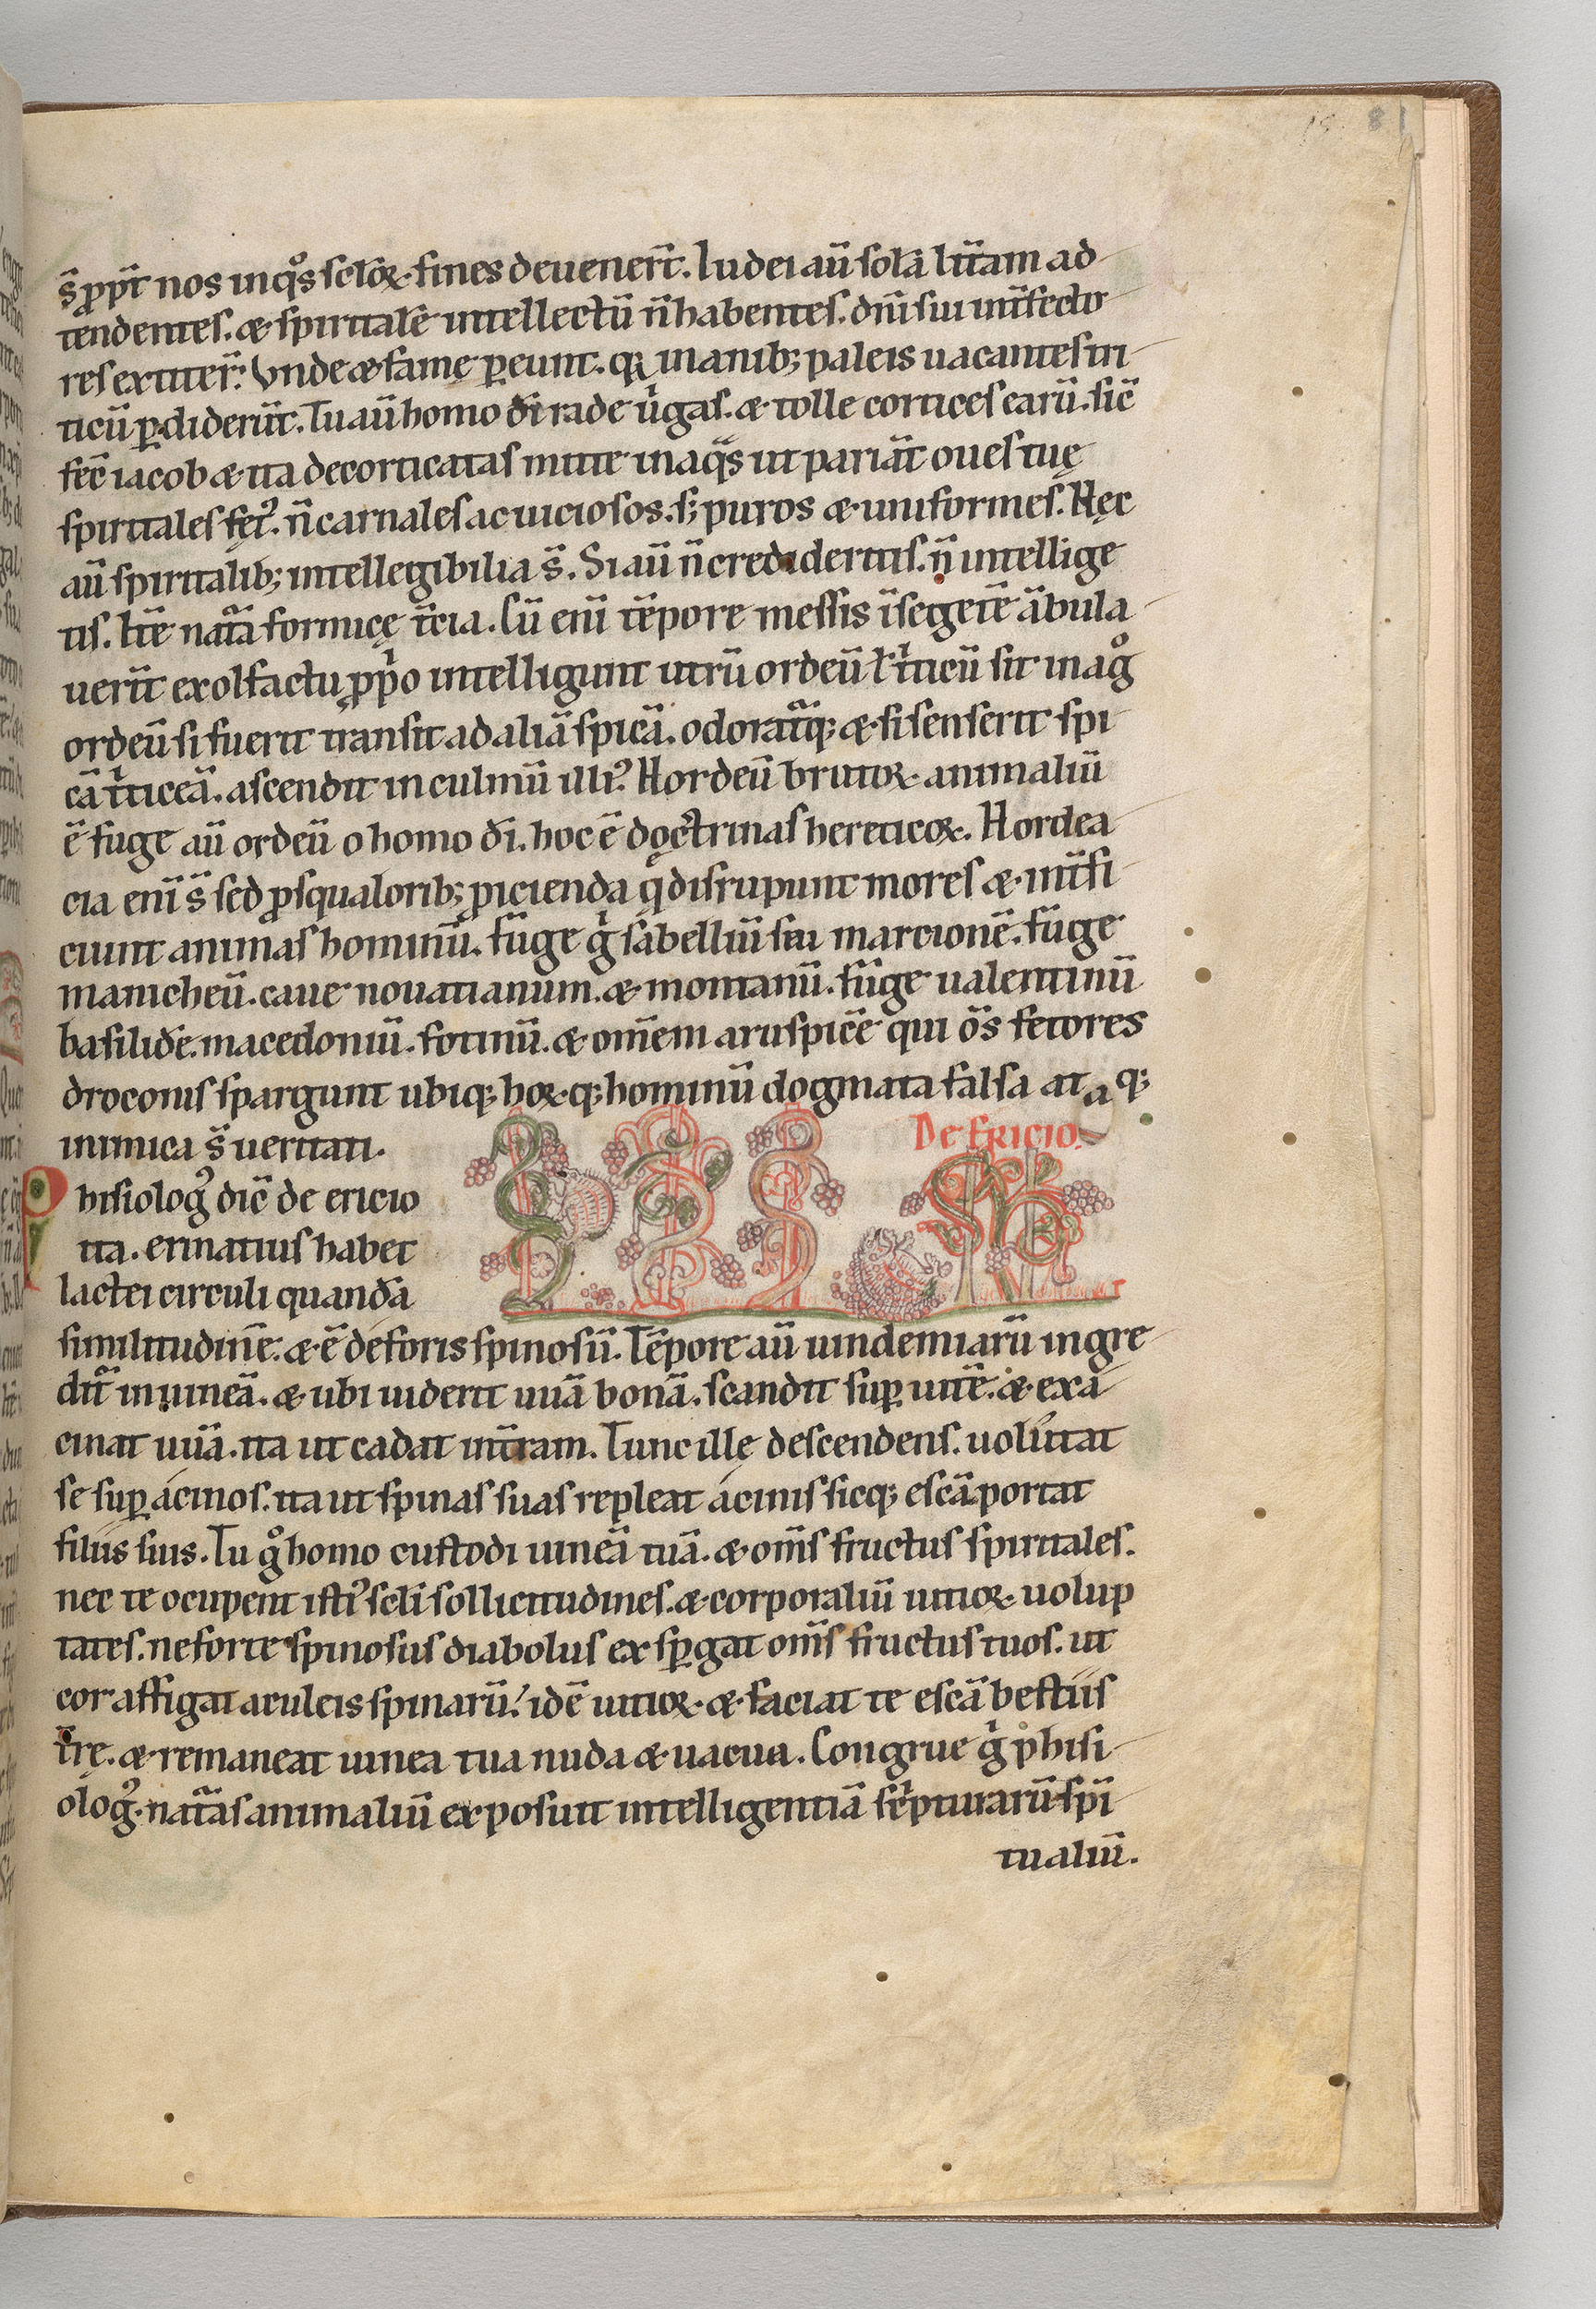 19. 81
s̄ ꝓpt̄ nos in q̊s sc̄loꝝ fines deuener̄t. Iudei aū solā litt̄am ad
tendentes. & spiritalē intellectū n̄ habentes. dn̄i sui int̄fecto
res extiter̄. Vnde & famę ꝑeunt. qꝛ inanib; paleis uacantes tri
ticū ꝑdiderūt. Tu aū homo dī rade ůgas. & tolle cortices earū. sic̄
fec̄ iacob & ita decorticatas mitte in aq̄s ut pariāt oues tuę
spiritales fęt᾽. n̄ carnales ac uiciosos. s; puros & uniformes. Hęc
aū spiritalib; intellegibilia s̄. Si aū n̄ credideritis. n̄ intellige
tis. Itē natā̄ formicę t̄cia. Cū eni tēpore messis ī segetē ābula
uerīt ex olfactu ꝓpͥo intelligunt utrū ordeū ł tͥticū sit in agͦ
ordeū si fuerit transit ad aliā spicā. odoratq; & si senserit spi
cā tͥticeā. ascendit in culmū illi᾽. Hordeū brutoꝝ animaliū
ē fuge aū ordeū o homo dī. hoc ē doctrinas hereticoꝝ. Hordea
cia eni s̄ sed ꝓ squaloribꝫ ꝓicienda q̄ disrupunt mores & int̄fi
ciunt animas hominū. fuge gͥ sabelliū seu marcionē. fuge
manicheū. caue nouatianum. & montanū. fuge ualentinū
basilidē. macedoniū. fotinū. & om̄em aruspicē qui ōs fetores
droconis spargunt ubiq; hoꝝ q; hominū dogmata falsa at a q;
inimica s̄ ueritati.
De Ericio.
Phisiolog᾽ dic̄ de ericio
ita. erinatius habet
lactei circuli quandā
similitudinē. & ē deforis spinosū. Tēpore aū uindemiarū ingre
dit̄ in uineā. & ubi uiderit uuā bonā. scandit suꝑ uitē. & exa
cinat uuā. ita ut cadat in t̄ram. Tunc illę descendens. uolūtat
se suꝑ acinos. ita ut spinas suas repleat acinis sicq; escā portat
filiis suis. Tu gͦ homo custodi uineā tuā. & om̄s fructus spiritales.
nec te ocupent isti᾽ sc̄li sollicitudines. & corporaliū uitioꝝ uolup
tates. ne forte spinosus diabolus ex sꝑgat om̄s fructus tuos. ut
cor affigat aculeis spinarū. idē uitioꝝ & faciat te escā bestiis
t̄rę. & remaneat uinea tua nuda & uacua. Congrue gͥ phisi
olog᾽ natā̄s animaliū exposuit intelligentiā scͥpturarū spi
tualiū.